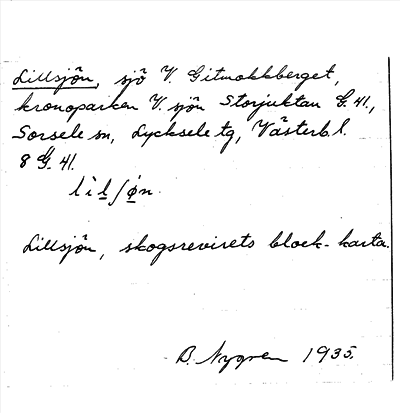 Lillsjön, sjö V. Gitmokkberget,
kronoparken V. sjön Storjuktan G. 41.,
Sorsele sn, Lycksele tg, Västerb. l.
8 G. 41.
lìl̲ʃø̲n.
Lillsjön, skogsrevirets block-karta.
B. Nygren 1935.